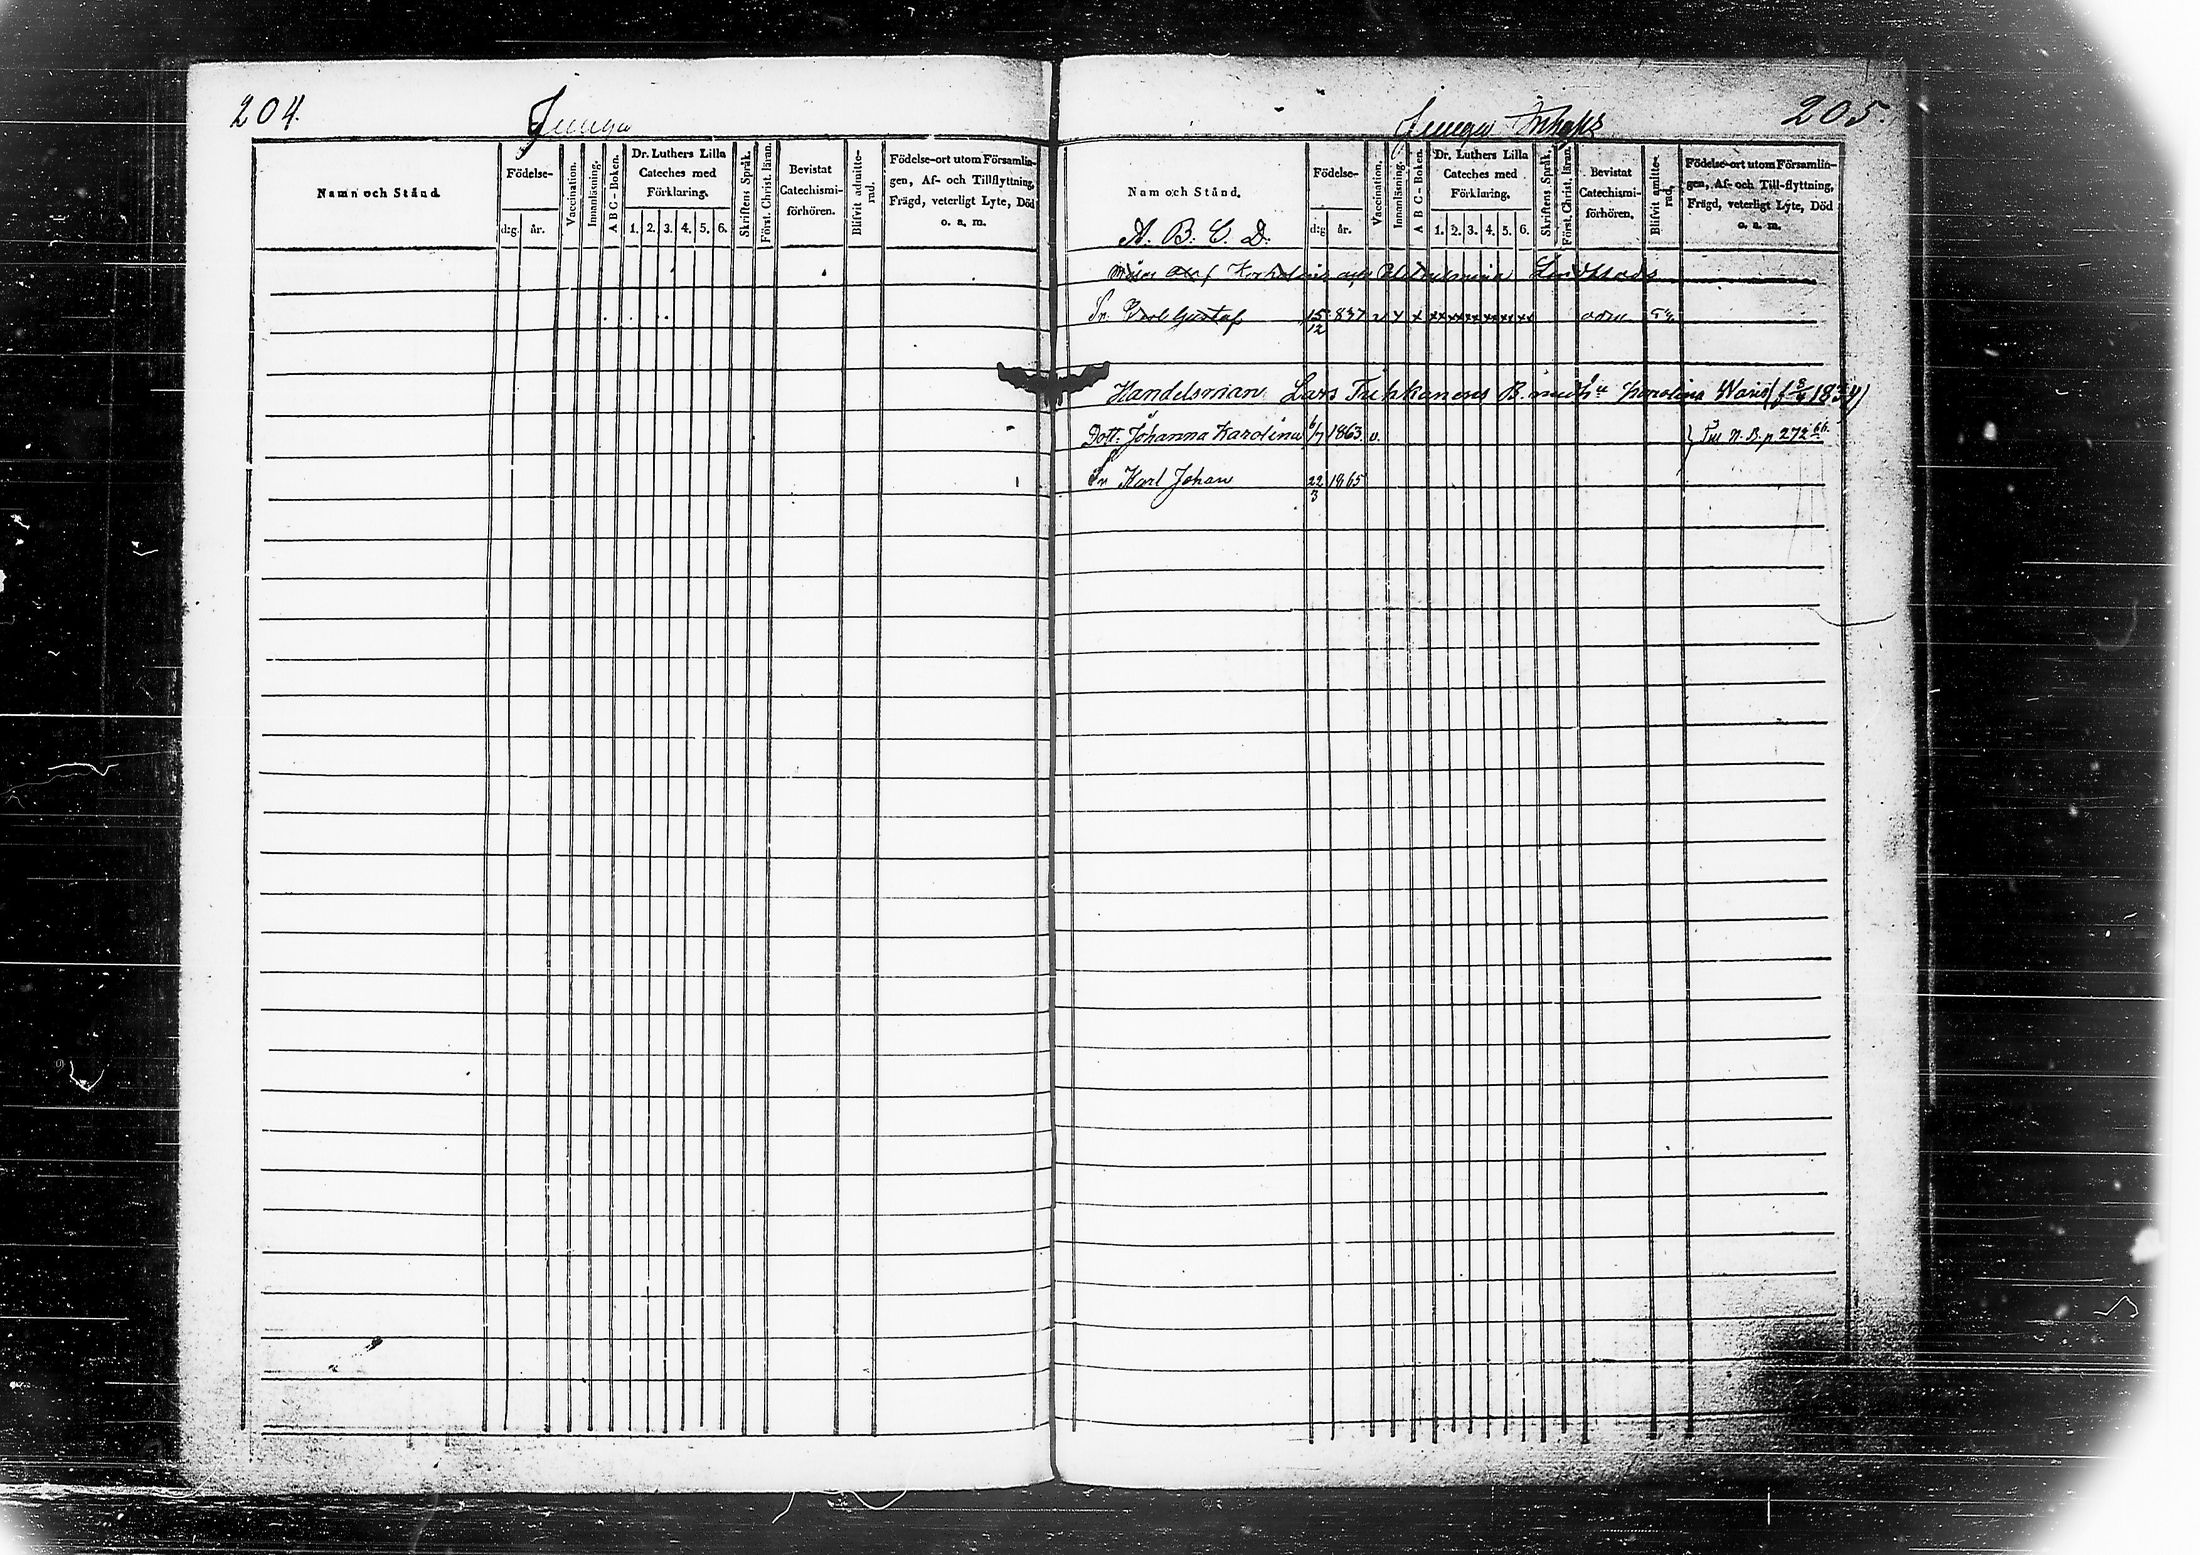 204.
Namn och Stånd.
Födelse-
d:g. år.
Vaccination.
Innanläsning.
A B C - Boken.
Dr. Luthers Lilla
Cateches med
Förklaring.
1. 2. 3. 4. 5. 6.
Skriftens Språk.
Först. Christ. läran.
Bevistat
Catechismi-
förhören.
Blifvit admitte-
rad.
Födelse-ort utom Församlin-
gen, Af- och Tillflyttning,
Frägd, veterligt Lyte, Död
o. a. m.
205.
Nam och Stånd.
A. B. C. D.
Födelse-
d:g år.
Vaccination.
Innanläsning.
A B C - Boken.
Dr. Luthers Lilla
Cateches med
Förklaring.
1. 2. 3. 4. 5. 6.
Skriftens Språk.
Först. Christ. läran.
Bevistat
Catechismi-
förhören.
Blifvit amitte-
rad,
Födelse-ort utom Församlin-
gen, Af- och Till-flyttning,
Frägd, veterligt Lyte, Död
o. a. m.
Sn. Gustaf 15/12 837
Handelsman Lars Tuhkanens B. med Karolina
Dott. Johanna Karolina 6/7 1863. v. N. B. p 272
Sn Karl Johan 22/3 1865